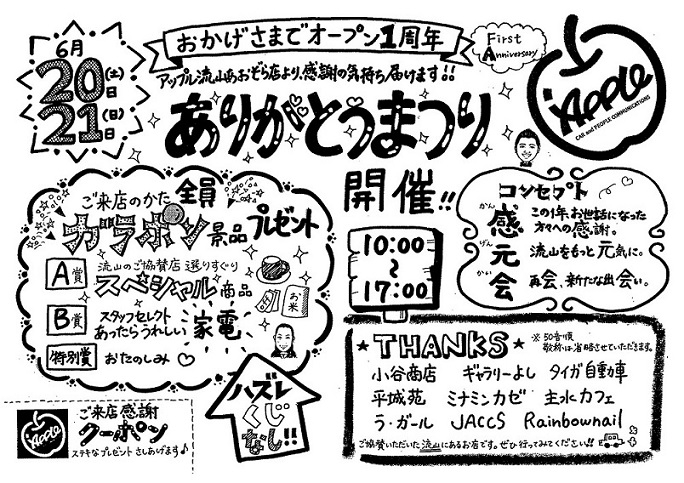 6月
20日(土)
21日(日)
おかげさまでオープン1周年
First Anniversary
アップル流山あおぞら店より、感謝の気持ち届けます!!
ありがとうまつり
開催!!
10:00
~
17:00
Apple
CAR and PEOPLE COMMUNICATIONS
コンセプト
かん
感 この1年お世話になった方々への感謝。
げん
元 流山をもっと元気に。
かい
会 再会、新たな出会い。
ご来店のかた全員
ガラポン景品プレゼント
A賞 流山のご協賛店選りすぐり
スペシャル商品
お米
B賞 スタッフセレクト
あったらうれしい家電
特別賞 おたのしみ
ハズレくじなし!!
ご来店感謝
クーポン
ステキなプレゼントさしあげます♪
Apple
★THANKS★
※50音順
敬称は省略させていただきます。
小谷商店 ギャラリーよし タイガ自動車
平城苑 ミナミンカゼ 主水カフェ
ラ・ガール JACCS Rainbownail
ご協賛いただいた流山にあるお店です。ぜひ行ってみてください!!